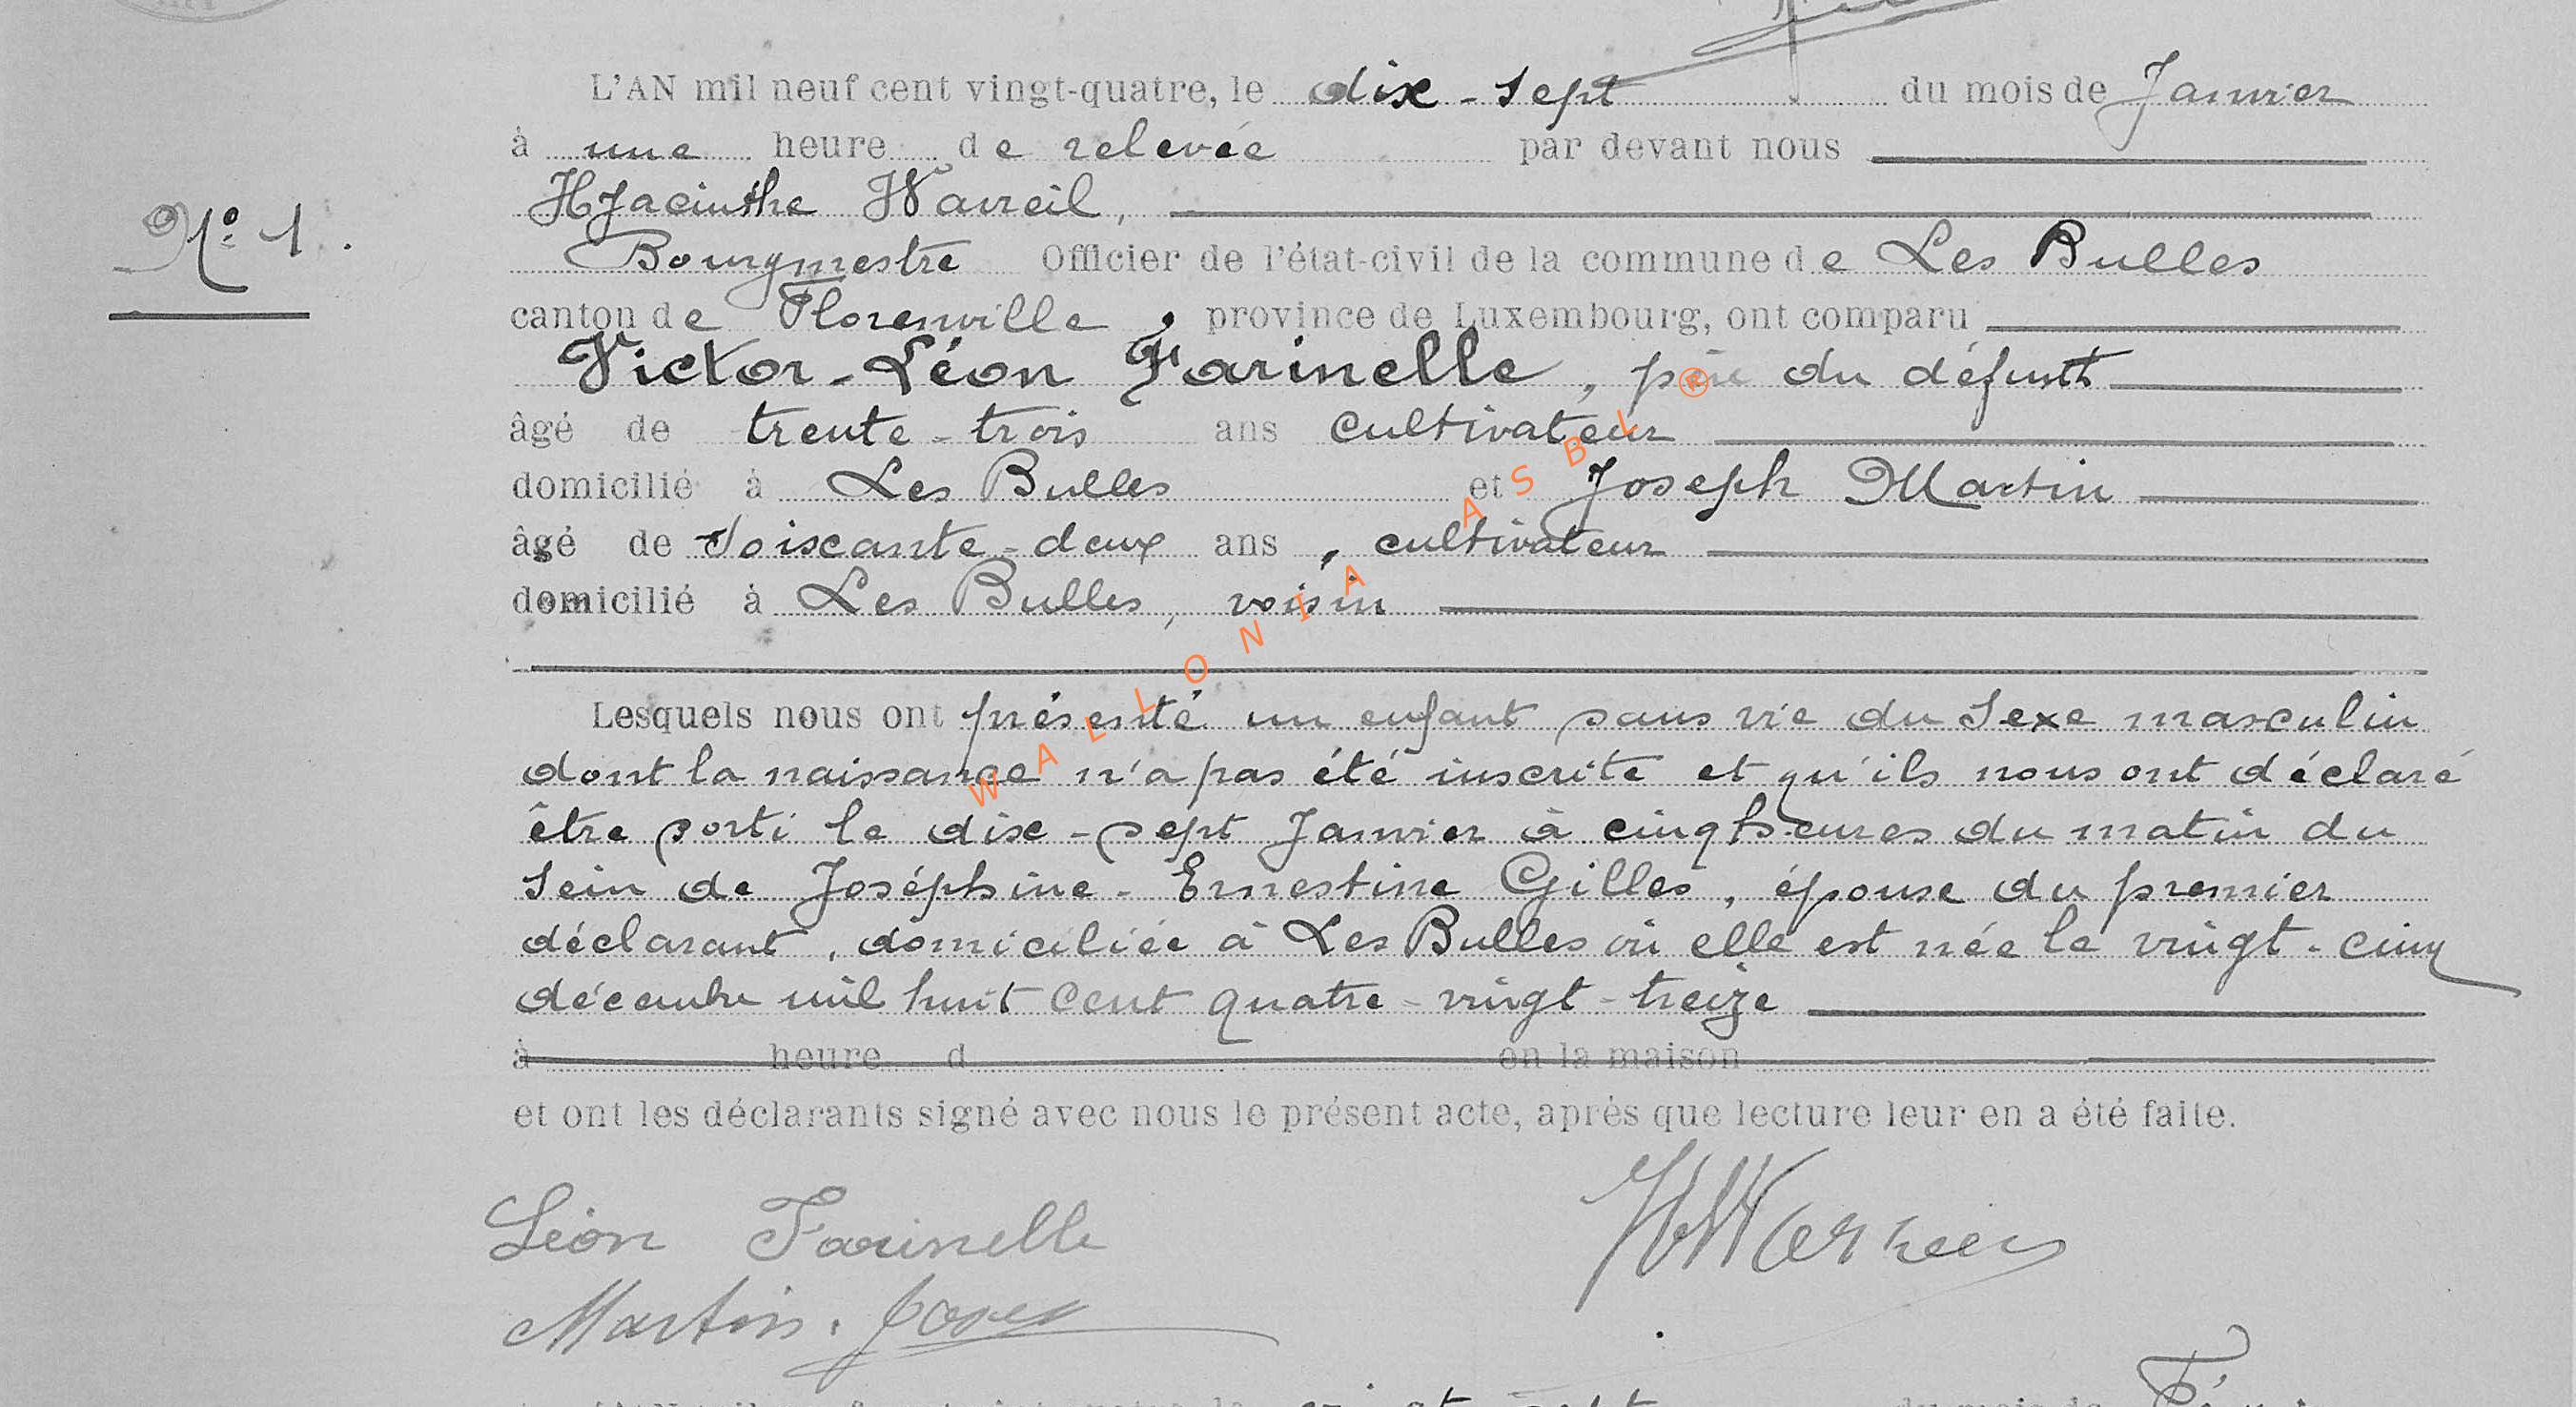 L'AN mil neuf cent vingt-quatre, le dix-sept du mois de Janvier
à une heure de relevée par devant nous
Hyacinthe Wavreil,
N° 1.
Bourgmestre Officier de l'état-civil de la commune de Les Bulles
canton de Florenville, province de Luxembourg, ont comparu
Victor-Léon Farinelle, père du défunt
âgé de trente-trois ans cultivateur
domicilié à Les Bulles et Joseph Martin
âgé de Soixante-deux ans, cultivateur
domicilié à Les Bulles, voisin
Lesquels nous ont présenté un enfant sans vie du sexe masculin
dont la naissance n'a pas été inscrite et qu'ils nous ont déclaré
être sorti le dix-sept Janvier à cinq heures du matin du
sein de Joséphine-Ernestine Gilles, épouse du premier
déclarant, domiciliée à Les Bulles où elle est née le vingt-cinq
décembre mil huit cent quatre-vingt-treize
à heure d en la maison
et ont les déclarants signé avec nous le présent acte, après que lecture leur en a été faite.
Léon Farinelle
Martin. Joseph
WALLONIA ASBL ®